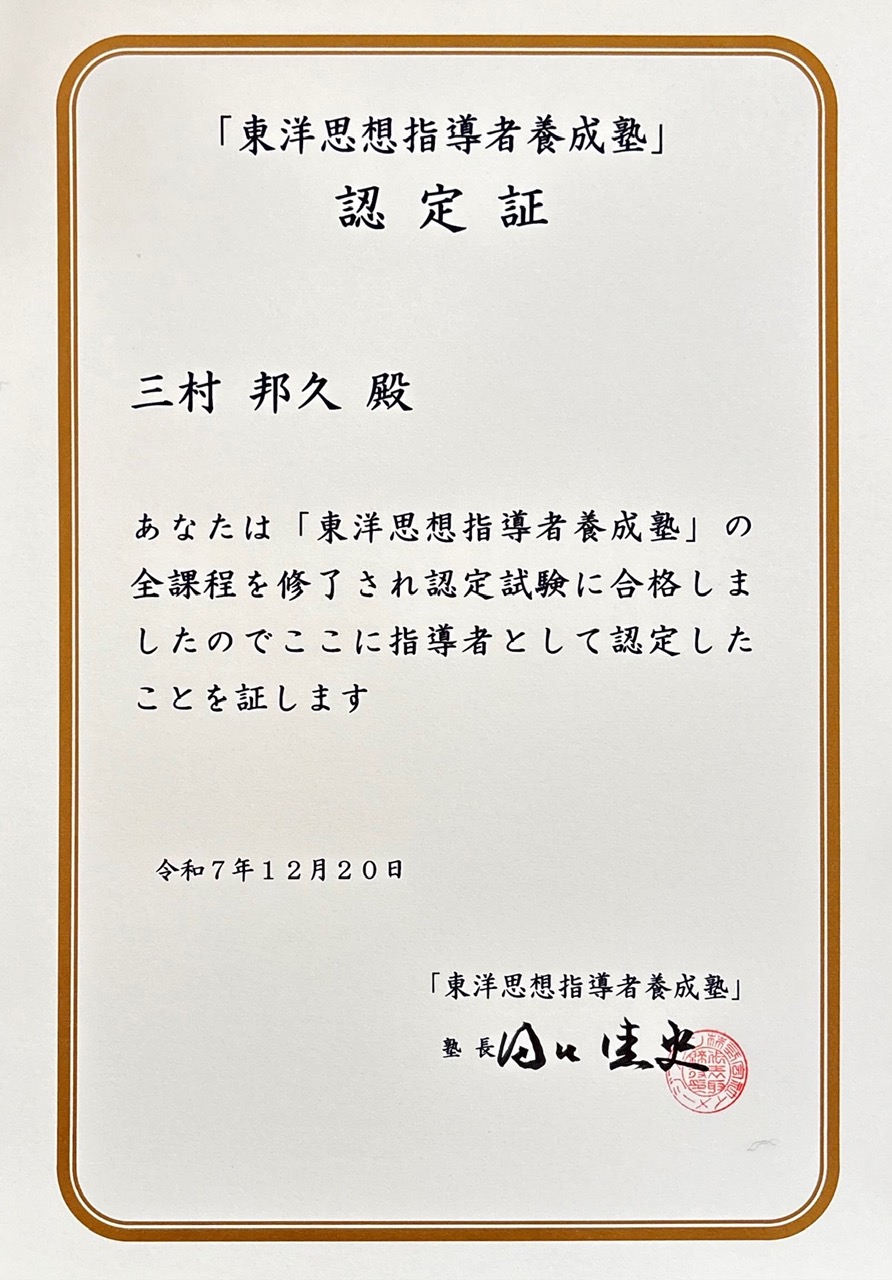 「東洋思想指導者養成塾」
認定証
三村 邦久 殿
あなたは「東洋思想指導者養成塾」の
全課程を修了され認定試験に合格しま
したのでここに指導者として認定した
ことを証します
令和７年１２月２０日
「東洋思想指導者養成塾」
塾 長 田口 佳史